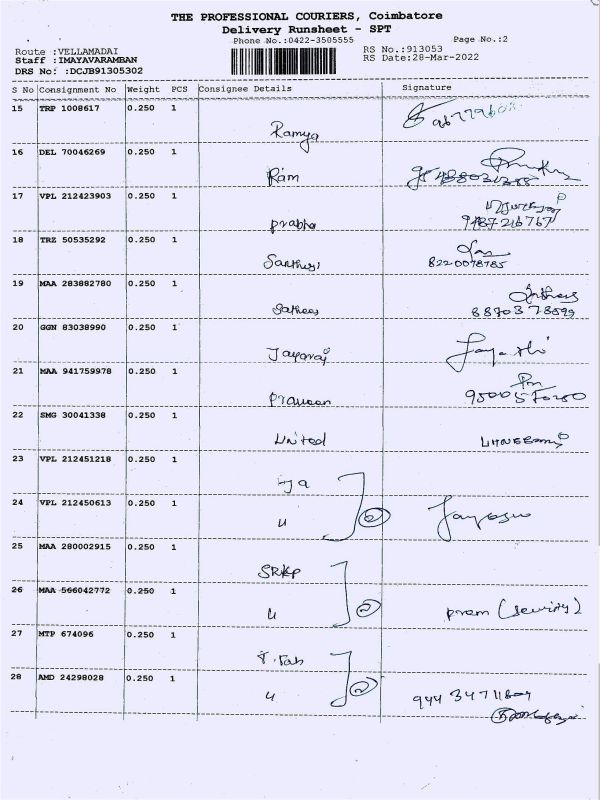 THE PROFESSIONAL COURIERS, Coimbatore
Delivery Runsheet - SPT
Phone No.:0422-3505555 Page No.:2
Route :VELLAMADAI RS No.:913053
Staff :IMAYAVARAMBAN RS Date:28-Mar-2022
DRS No: :DCJB91305302
S No Consignment No Weight PCS Consignee Details Signature
15 TRP 1008617 0.250 1
Ramya
16 DEL 70046269 0.250 1
Ram
17 VPL 212423903 0.250 1
Prabha 9487216767
18 TRZ 50535292 0.250 1
8220078785
19 MAA 283882780 0.250 1
Sathees
20 GGN 83038990 0.250 1
Jayaraj
21 MAA 941759978 0.250 1
Praveen
22 SMG 30041338 0.250 1
United
23 VPL 212451218 0.250 1
24 VPL 212450613 0.250 1
u 2
25 MAA 280002915 0.250 1
SRKP
26 MAA 566042772 0.250 1
u 2 prem
27 MTP 674096 0.250 1
28 AMD 24298028 0.250 1
u 2